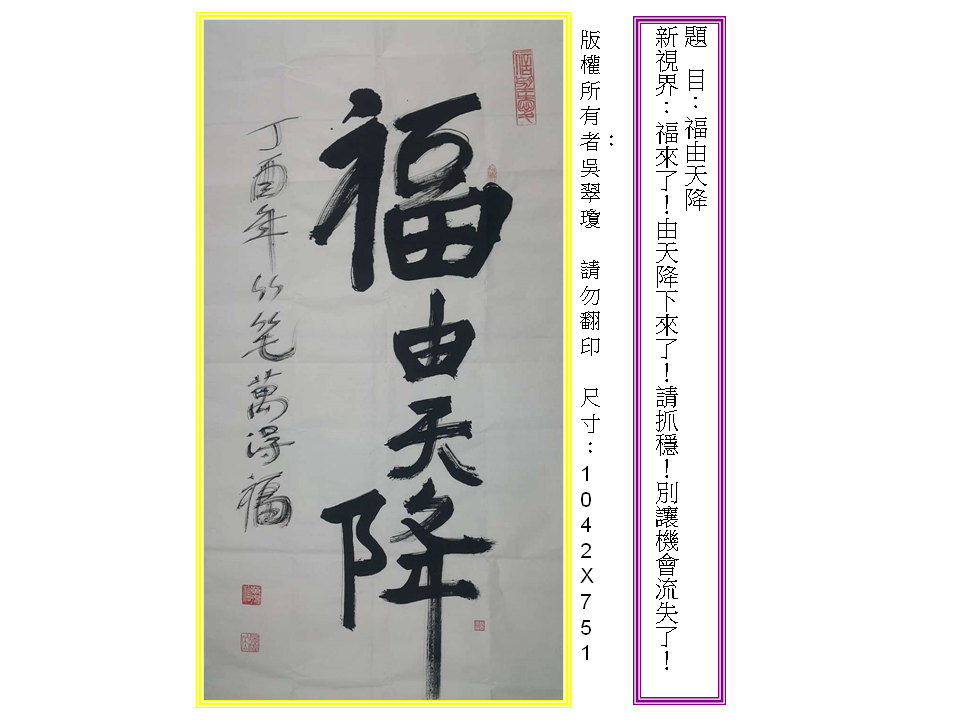 題　目：福由天降
新視界：福來了！由天降下來了！請抓穩！別讓機會流失了！
版權所有者：吳翠瓊　請勿翻印　尺寸：1042X751
福由天降
丁酉年竹笔萬得福